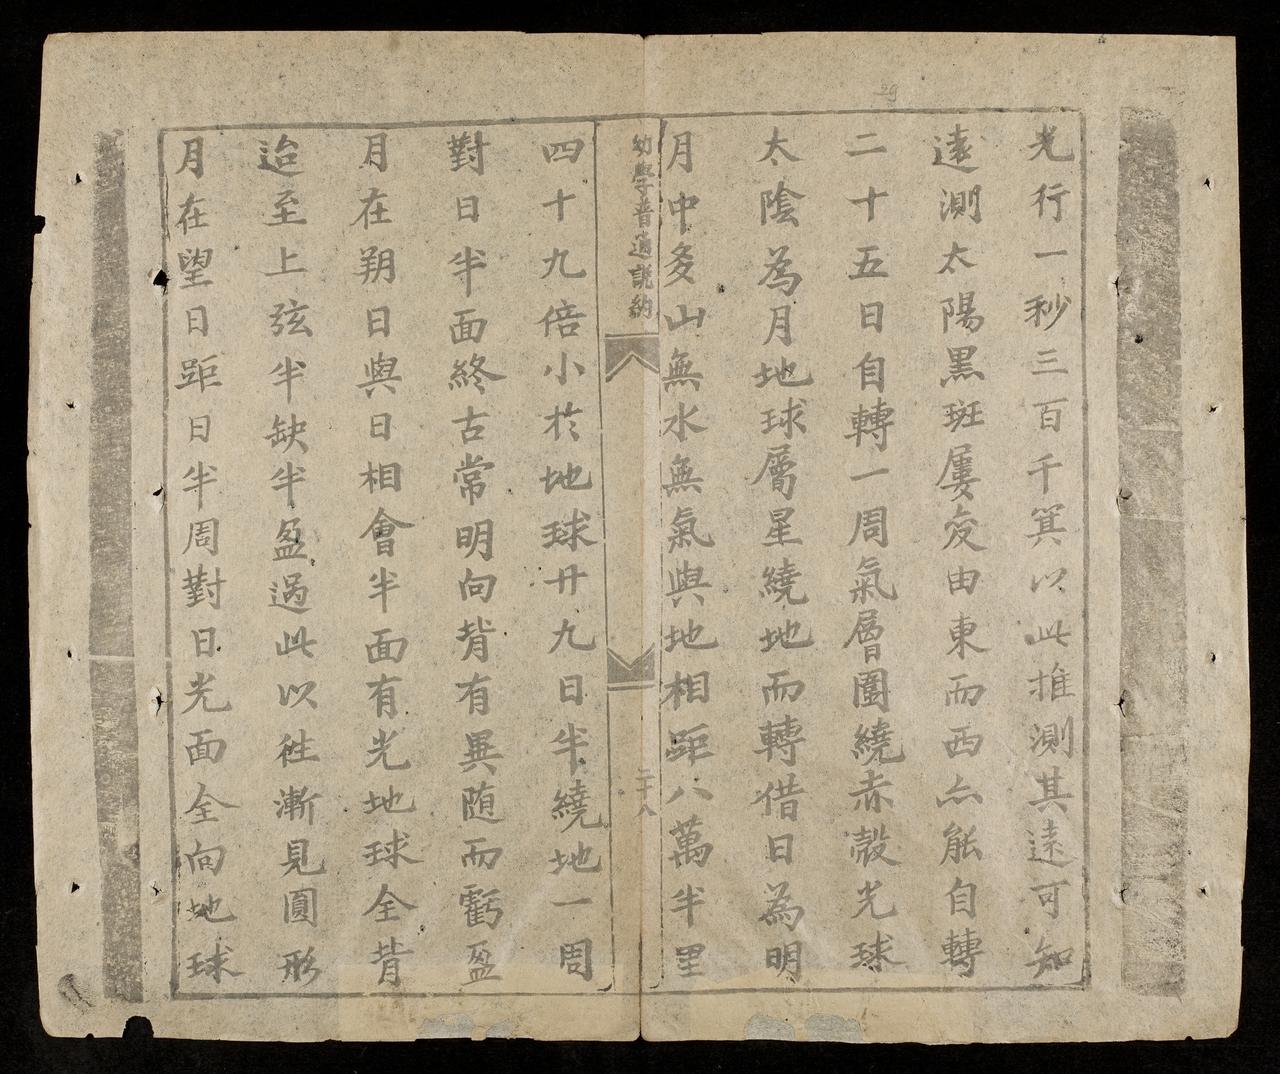 光行一秒三百千箕以此推測其遠可知
遠測太陽黒斑屢変由東而西亦能自轉
二十五日自轉一周氣層圍繞赤殼光球
太陰為月地球屬星繞地而轉借日為明
月中多山無水無氣與地相距八萬半里
幼學普通説約
二十八
四十九倍小於地球廿九日半繞地一周
對日半面終古常明向背有異随而虧盈
月在朔日與日相會半面有光地球全背
迨至上弦半缺半盈過此以徃漸見圓形
月在望日距日半周對日光面全向地球